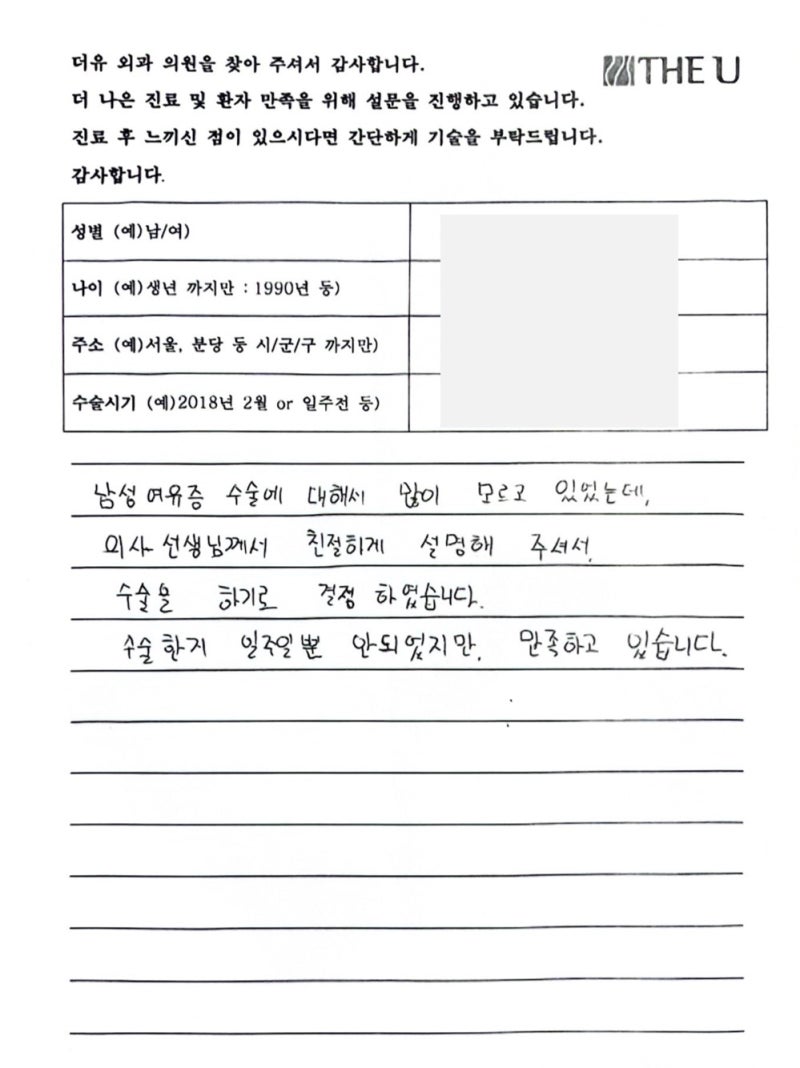 더유 외과 의원을 찾아 주셔서 감사합니다.
THE U
더 나은 진료 및 환자 만족을 위해 설문을 진행하고 있습니다.
진료 후 느끼신 점이 있으시다면 간단하게 기술을 부탁드립니다.
감사합니다.
성별 (예)남/여)
나이 (예)생년 까지만 : 1990년 등)
주소 (예)서울, 분당 등 시/군/구 까지만)
수술시기 (예)2018년 2월 or 일주전 등)
남성 여유증 수술에 대해서 많이 모르고 있었는데,
의사 선생님께서 친절하게 설명해 주셔서,
수술을 하기로 결정 하였습니다.
수술한지 일주일뿐 안되었지만, 만족하고 있습니다.